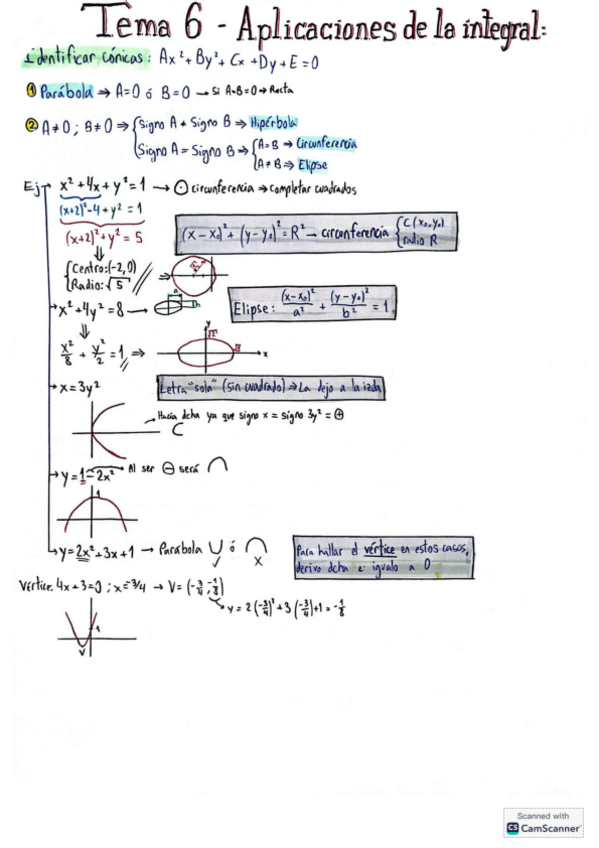 Tema 6 - Aplicaciones de la integral:
Identificar cónicas: Ax² + By² + Cx + Dy + E = 0
① Parábola ⇒ A=0 ó B=0 → Si A=B=0 ⇒ Recta
② A≠0 ; B≠0 ⇒ { Signo A ≠ Signo B ⇒ Hipérbola
Signo A = Signo B ⇒ { A=B ⇒ Circunferencia
A≠B ⇒ Elipse
Ej → x² + 4x + y² = 1 → ⊙ circunferencia ⇒ completar cuadrados
(x+2)² - 4 + y² = 1
(x+2)² + y² = 5
(x-x₀)² + (y-y₀)² = R² → circunferencia { C(x₀,y₀)
radio R
{ Centro: (-2,0)
Radio: √5
→ x² + 4y² = 8 →
a
b
Elipse: (x-x₀)²/a² + (y-y₀)²/b² = 1
x²/8 + y²/2 = 1 ⇒
y
√2
√8
x
→ x = 3y²
Letra "sola" (sin cuadrado) ⇒ La dejo a la izda
Hacia dcha ya que signo x = signo 3y² = ⊕
⊂
→ y = 1 - 2x² → Al ser ⊖ será ∩
1
→ y = 2x² + 3x + 1 → Parábola ∪ ó ∩
✓ x
Para hallar el vértice en estos casos,
derivo dcha e igualo a 0
Vértice: 4x + 3 = 0 ; x = -3/4 → V = (-3/4, -1/8)
y = 2(-3/4)² + 3(-3/4) + 1 = -1/8
1
V
Scanned with
CS CamScanner